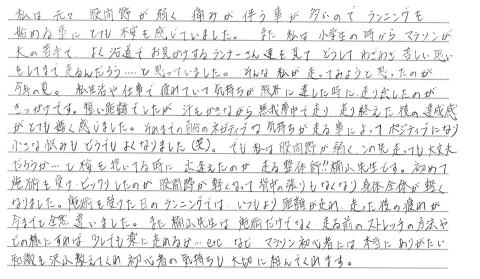 私は元々 股関節が弱く 痛みが伴う事が多いので ランニングを
始める事にとても不安を感じていました。また 私は小学生の時からマラソンが
大の苦手で よく沿道でお見かけするランナーさん達を見て どうして わざわざ 苦しい思い
をしてまで走るんだろう……と思っていました。そんな私が走ってみようと思ったのが
今年の夏。私生活や仕事で疲れていて気持ちが限界に達した時に走り出したのが
きっかけです。短い距離でしたが 汗をかきながら無我夢中で走り 走り終えた後の達成感
がとても強く感じました。それまでの自分のネガティブな気持ちが走る事によって ポジティブになり
小さな悩みもどうでもよくなりました(笑)。でも 私は股関節が弱く この先走っても大丈夫
だろうか…と不安を抱いてる時に 出逢えたのが 走る整体師!!楠山先生です。初めて
施術を受け ビックリしたのが 股関節が軽くなって 背中の張りもなくなり 身体全体が軽く
なりました。施術を受けた日のランニングでは いつもより距離が走れ 走った後の疲れが
今までと全然違いました。また楠山先生は 施術だけでなく 走る前のストレッチの方法や
どの様にすれば 少しでも楽に走れるか…etc など マラソン初心者には 本当にありがたい
知識を沢山教えてくれ 初心者の気持ちも大切に組んでくれます。